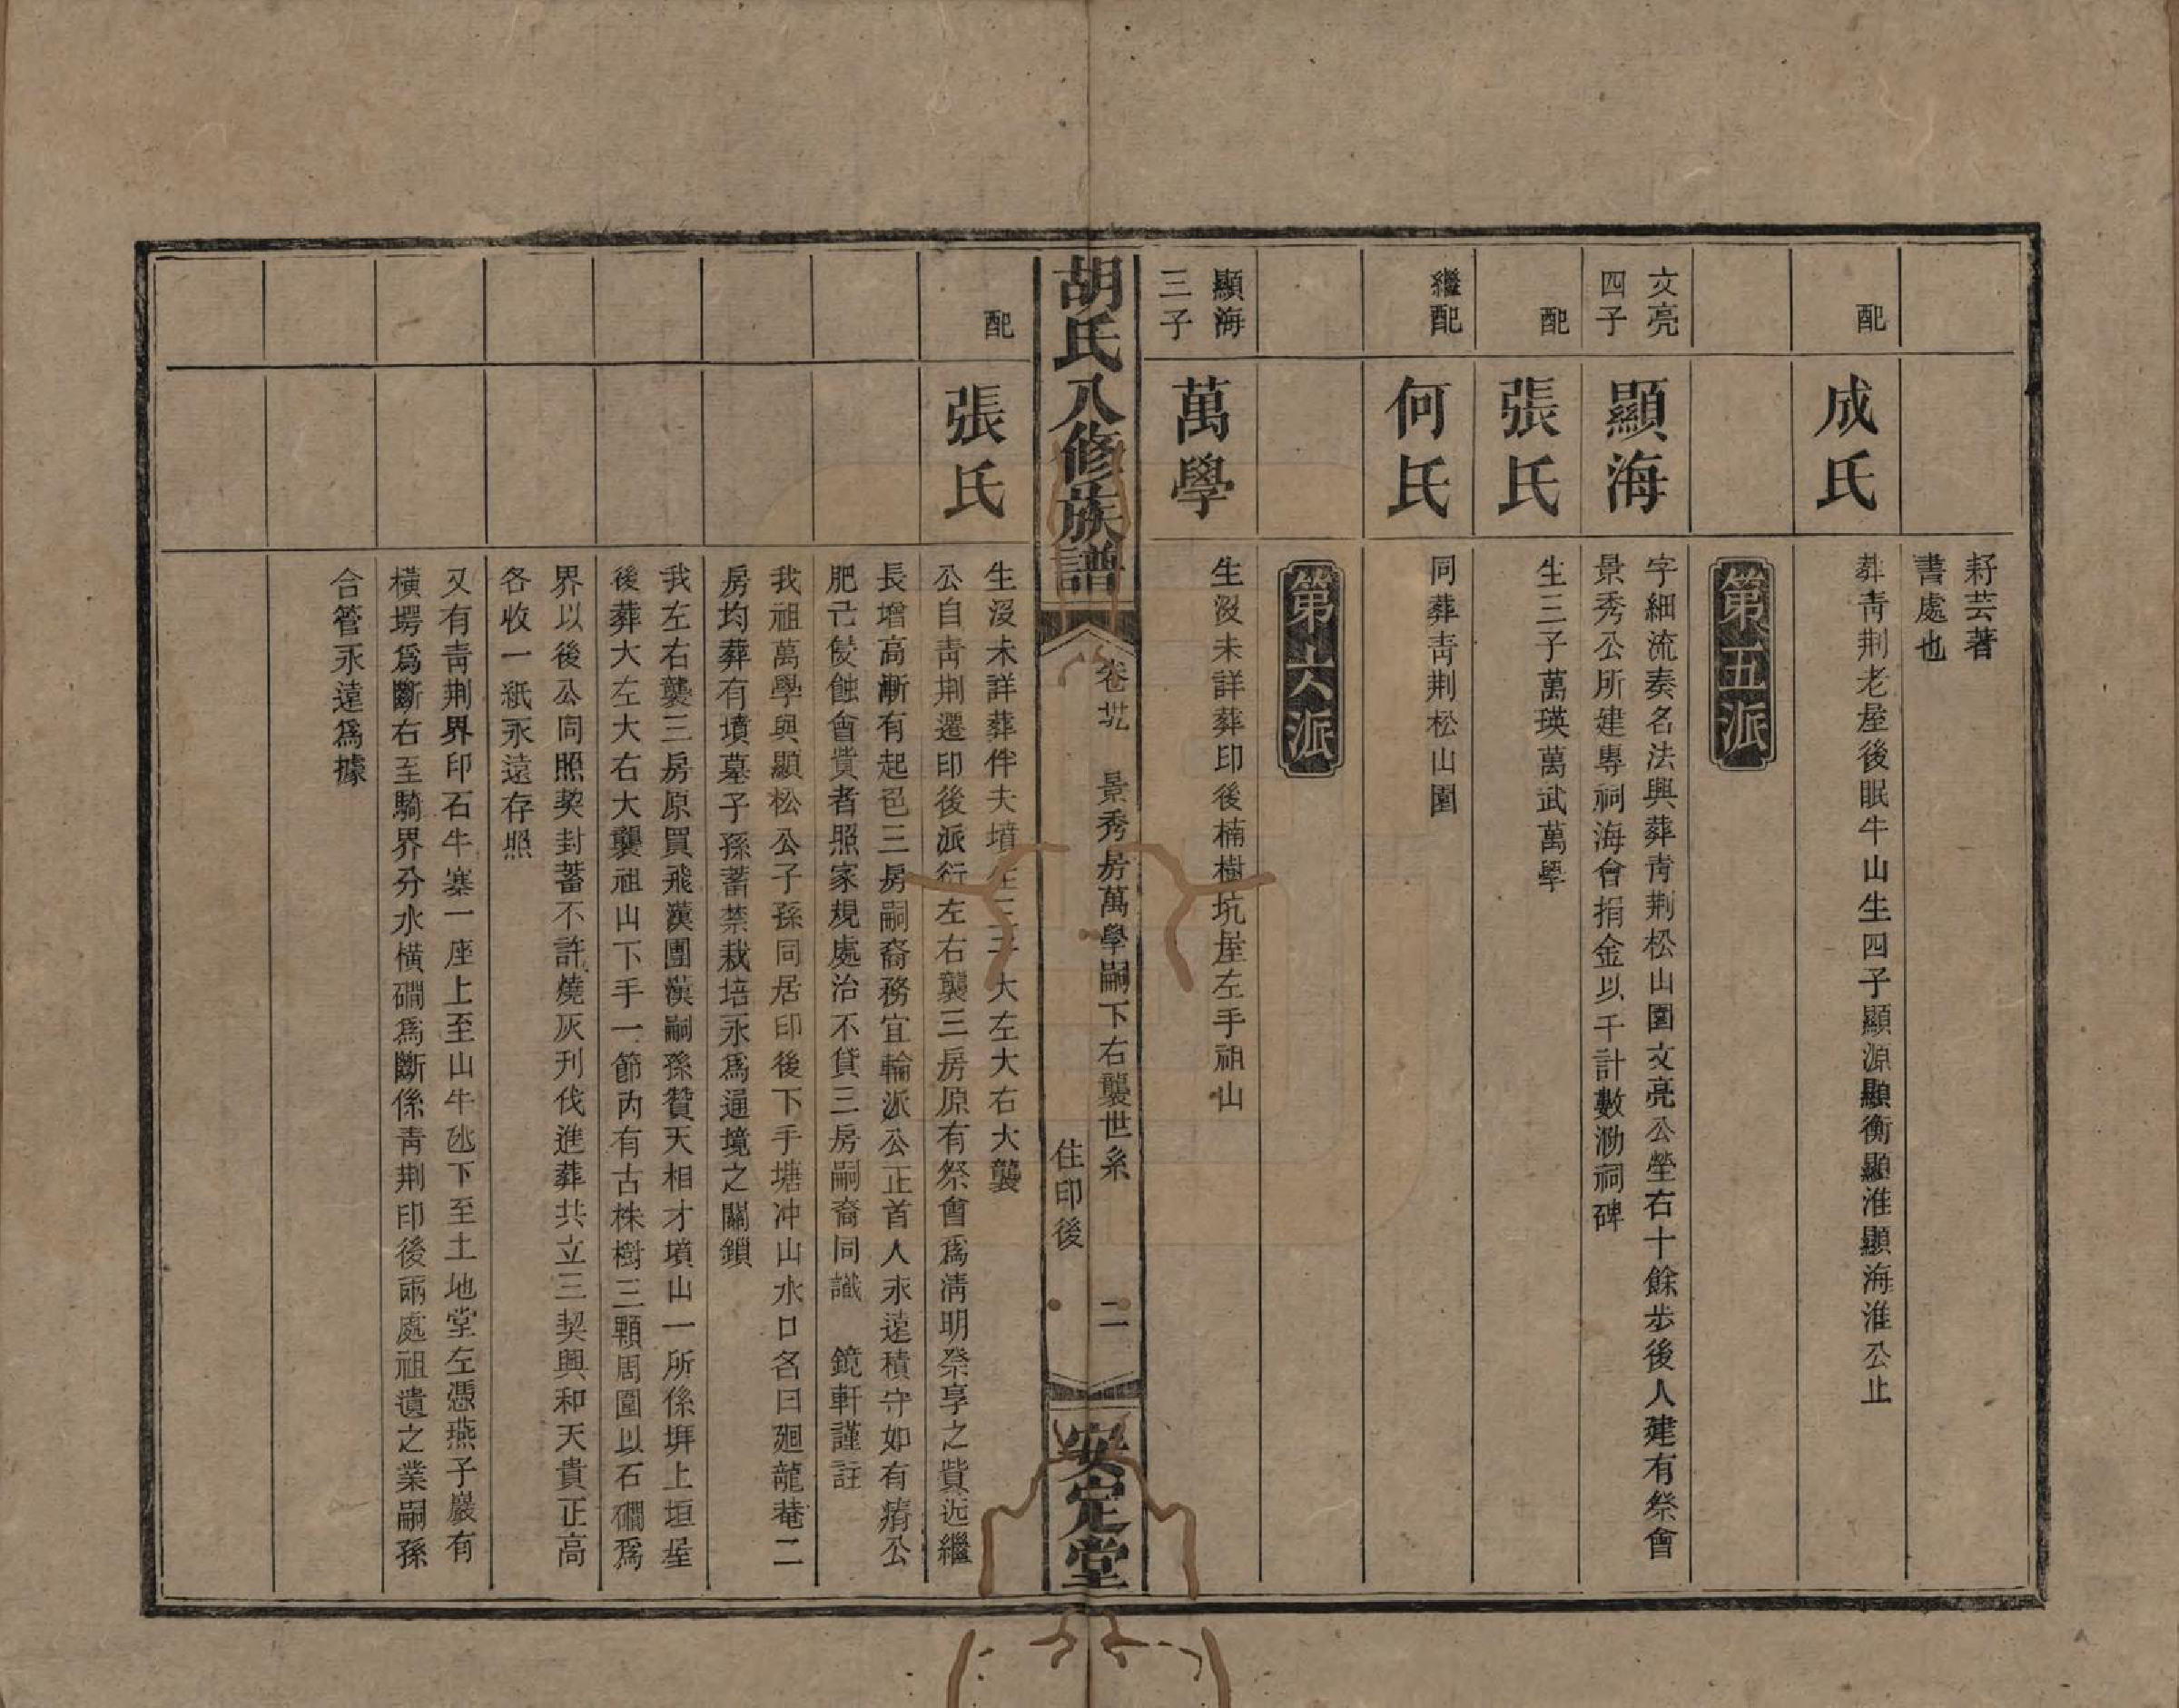 耔芸著
書處也
配
成氏
葬靑荆老屋後眠牛山生四子顯源顯衡顯淮顯海淮公止
第五派
文亮
四子
顯海
字細流奏名法興葬靑荆松山園文亮公塋右十餘步後人建有祭會
景秀公所建專祠海會捐金以千計數泐祠碑
配
張氏
生三子萬瑛萬武萬學
繼配
何氏
同葬靑荆松山園
第六派
顯海
三子
萬學
生沒未詳葬印後楠樹坑屋左手祖山
胡氏八修族譜
卷
景秀房萬學嗣下右襲世系
住印後
二
安定堂
配
張氏
生沒未詳葬伴夫墳生三子大左大右大襲
公自靑荆遷印後派衍左右襲三房原有祭會爲淸明祭享之貲近繼
長增高漸有起色三房嗣裔務宜輪派公正首人永遠積守如有瘠公
肥己侵蝕會貲者照家規處治不貸三房嗣裔同識 鏡軒謹註
我祖萬學與顯松公子孫同居印後下手塘冲山水口名曰廻龍菴二
房均葬有墳墓子孫蓄禁栽培永爲通境之關鎖
我左右襲三房原買飛漢團漢嗣孫贊天相才墳山一所係坪上垣屋
後葬大左大右大襲祖山下手一節內有古株樹三顆周圍以石磵爲
界以後公同照契封蓄不許燒灰刊伐進葬共立三契興和天貴正高
各收一紙永遠存照
又有靑荆界印石牛寨一座上至山牛氹下至土地堂左憑燕子巖有
橫塄爲斷右至騎界分水橫磵爲斷係靑荆印後兩處祖遺之業嗣孫
合管永遠爲據